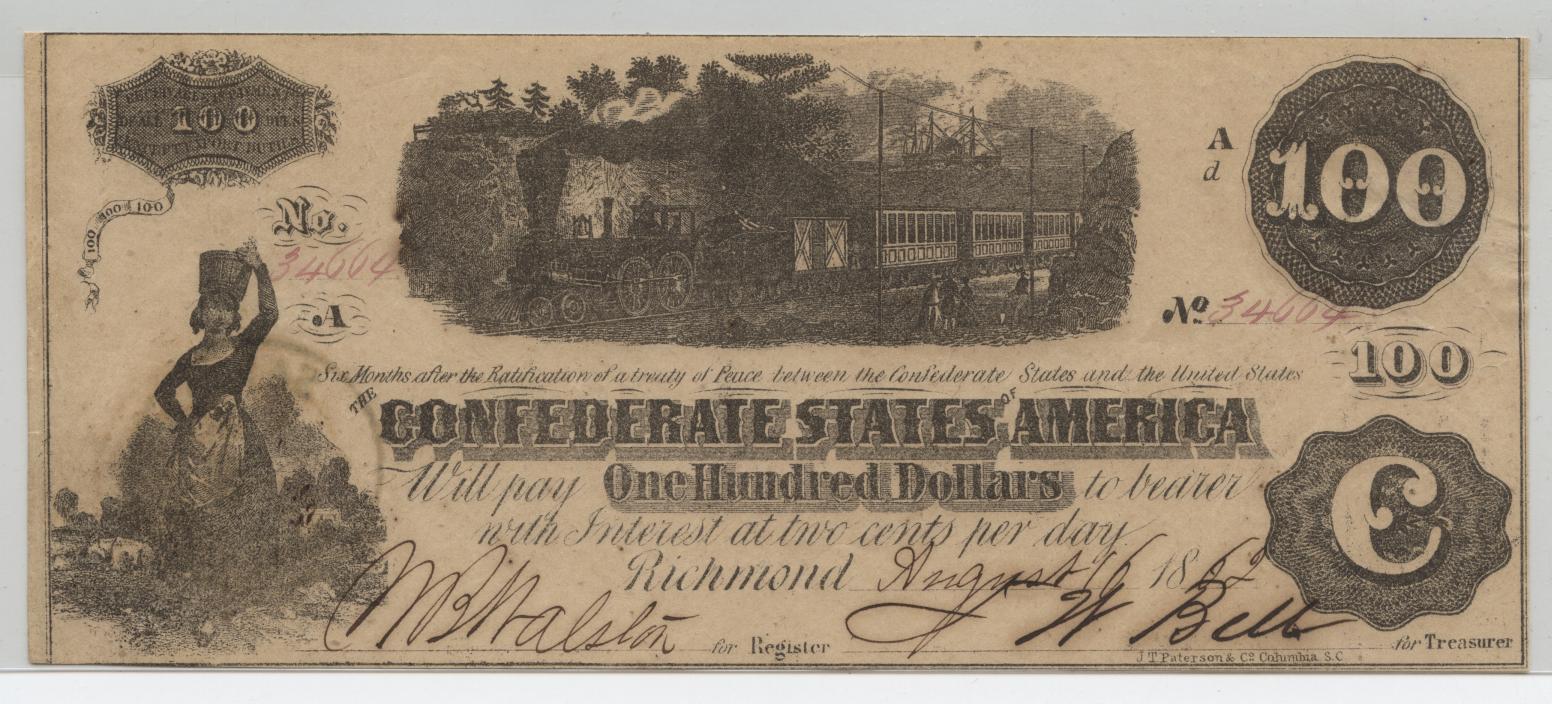 100
EXCEPT EXPORT DUTIES
100 100 100
No.
34664
A
A
d
100
No 34664
100
Six Months after the Ratification of a treaty of Peace between the Confederate States and the United States
THE CONFEDERATE STATES OF AMERICA
Will pay One Hundred Dollars to bearer
with Interest at two cents per day
Richmond August 16 1862
C
W B Walston for Register
J W Bell for Treasurer
J T Paterson & Co Columbia S.C